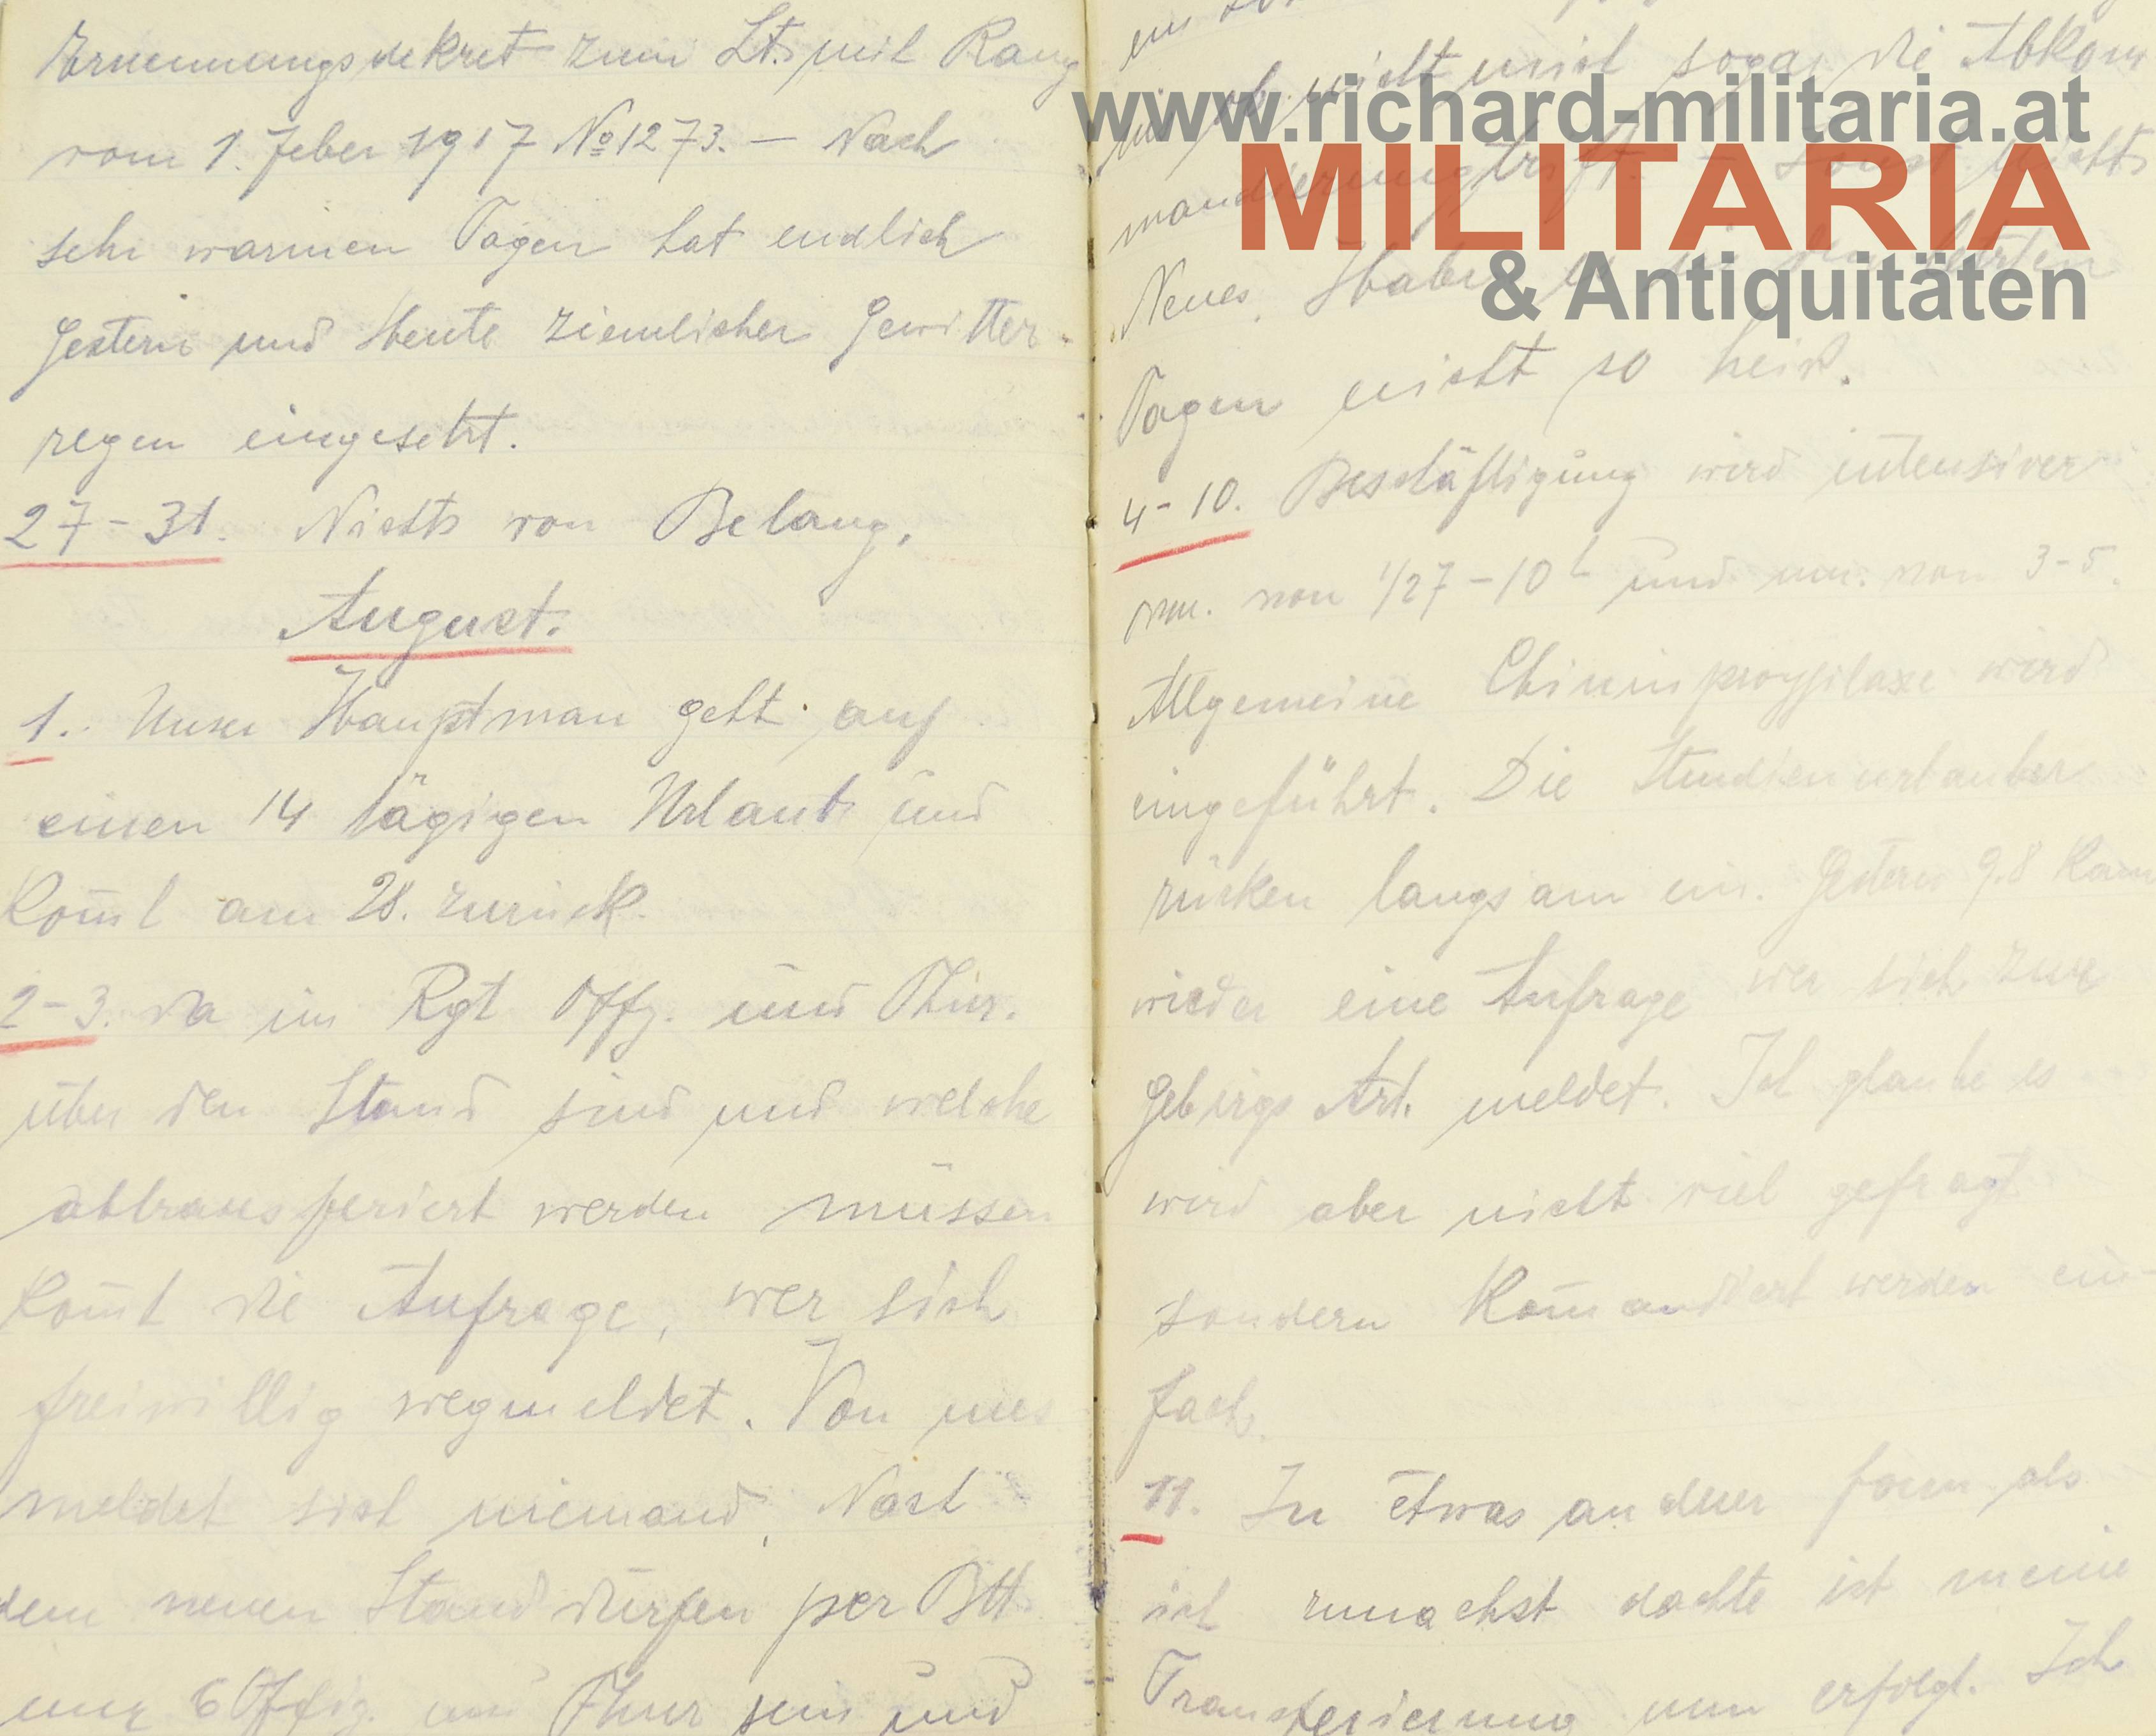 Ernennungsdekret zum Lt. mit Rang
vom 1. Feber 1917 No 1273. — Nach
sehr warmen Tagen hat endlich
gestern und Heute ziemlicher Gewitter-
regen eingesetzt.
27-31. Nichts von Belang.
August.
1. Unser Hauptman geht auf
einen 14 tägigen Urlaub und
kom̄t am 28. zurück.
2-3. Da im Rgt Offz. und Fhnr.
über den Stand sind und welche
abtransferiert werden müssen
kom̄t die Anfrage, wer sich
freiwillig wegmeldet. Von uns
meldet sich niemand. Nach
dem neuen Stand dürfen per Btt
nur 6 Offiz. und Fhnr sein und
ob nicht mich sogar die Abkom
mandierung trifft. – Sonst nichts
Neues. Haben es in den letzten
Tagen nicht so heiß.
4-10. Beschäftigung wird intensiver
vm. von 1/27-10h und nm. von 3-5.
Allgemeine Chininproyfilaxe wird
eingeführt. Die Studienurlauber
rücken langsam ein. Gestern 9.8 kam
wieder eine Anfrage wer sich zur
Gebirgs Art. meldet. Ich glaube es
wird aber nicht viel gefragt
sondern kom̄andiert werden ein-
fach.
11. In etwas anderer form als
ich zunächst dachte ist meine
Transferierung nun erfolgt. Ich
www.richard-militaria.at
MILITARIA
& Antiquitäten